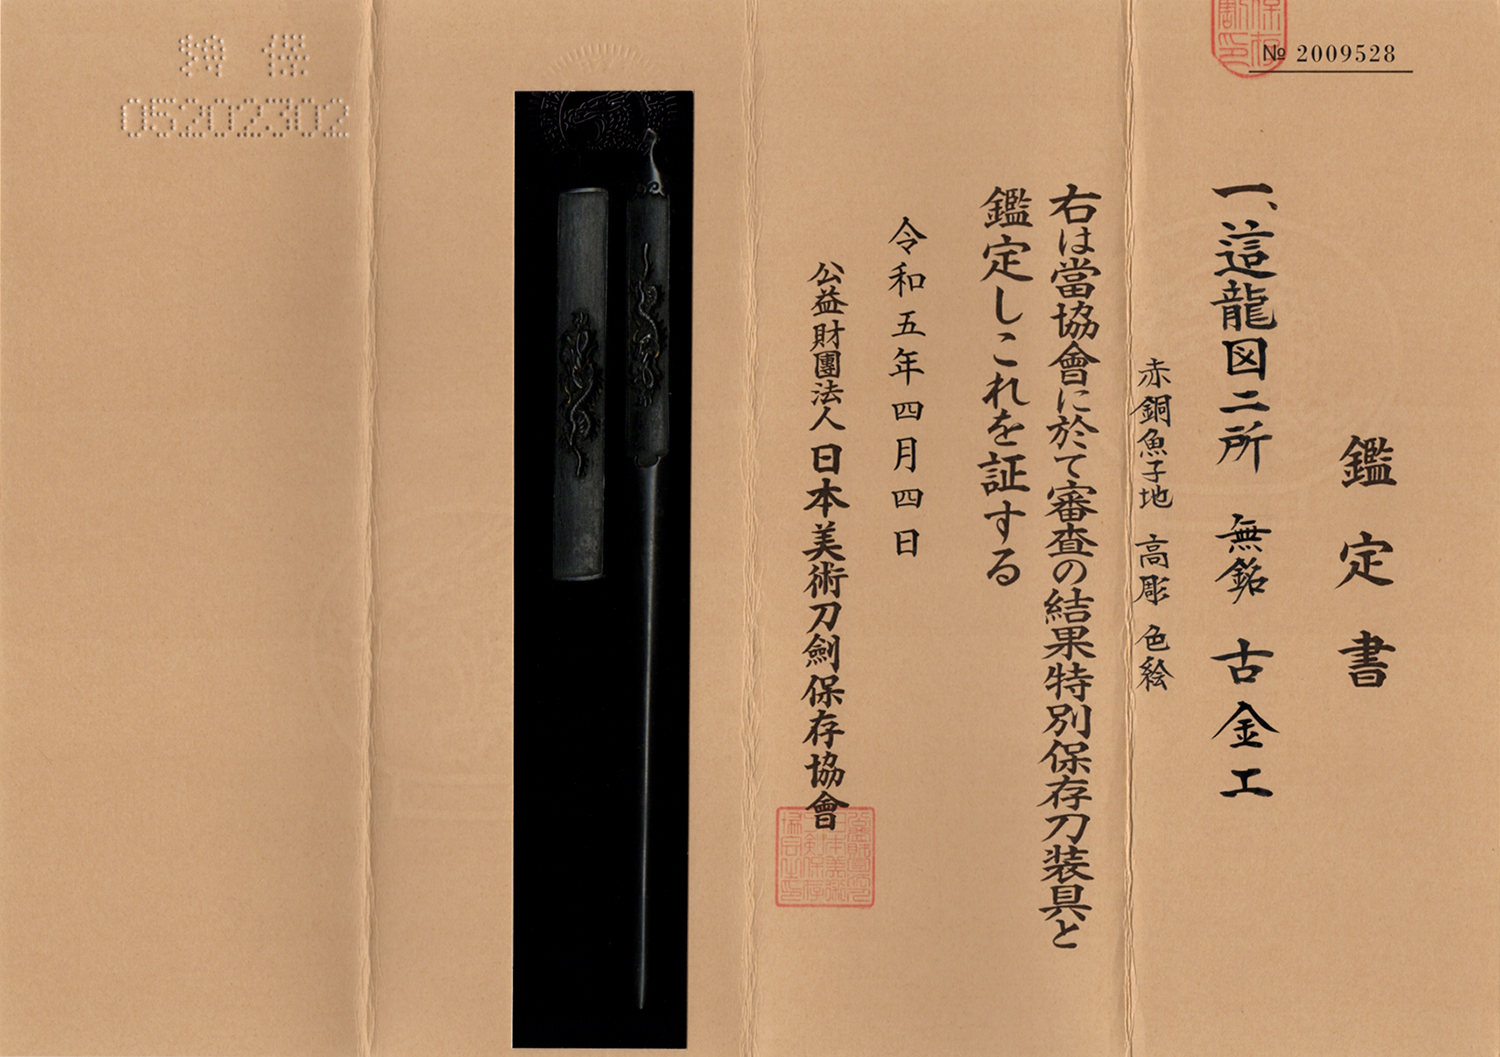 № 2009528
鑑定書
一、這龍図二所 無銘 古金工
赤銅魚子地 高彫 色絵
右は當協會に於て審査の結果特別保存刀装具と
鑑定しこれを証する
令和五年四月四日
公益財團法人 日本美術刀劍保存協會
05202302